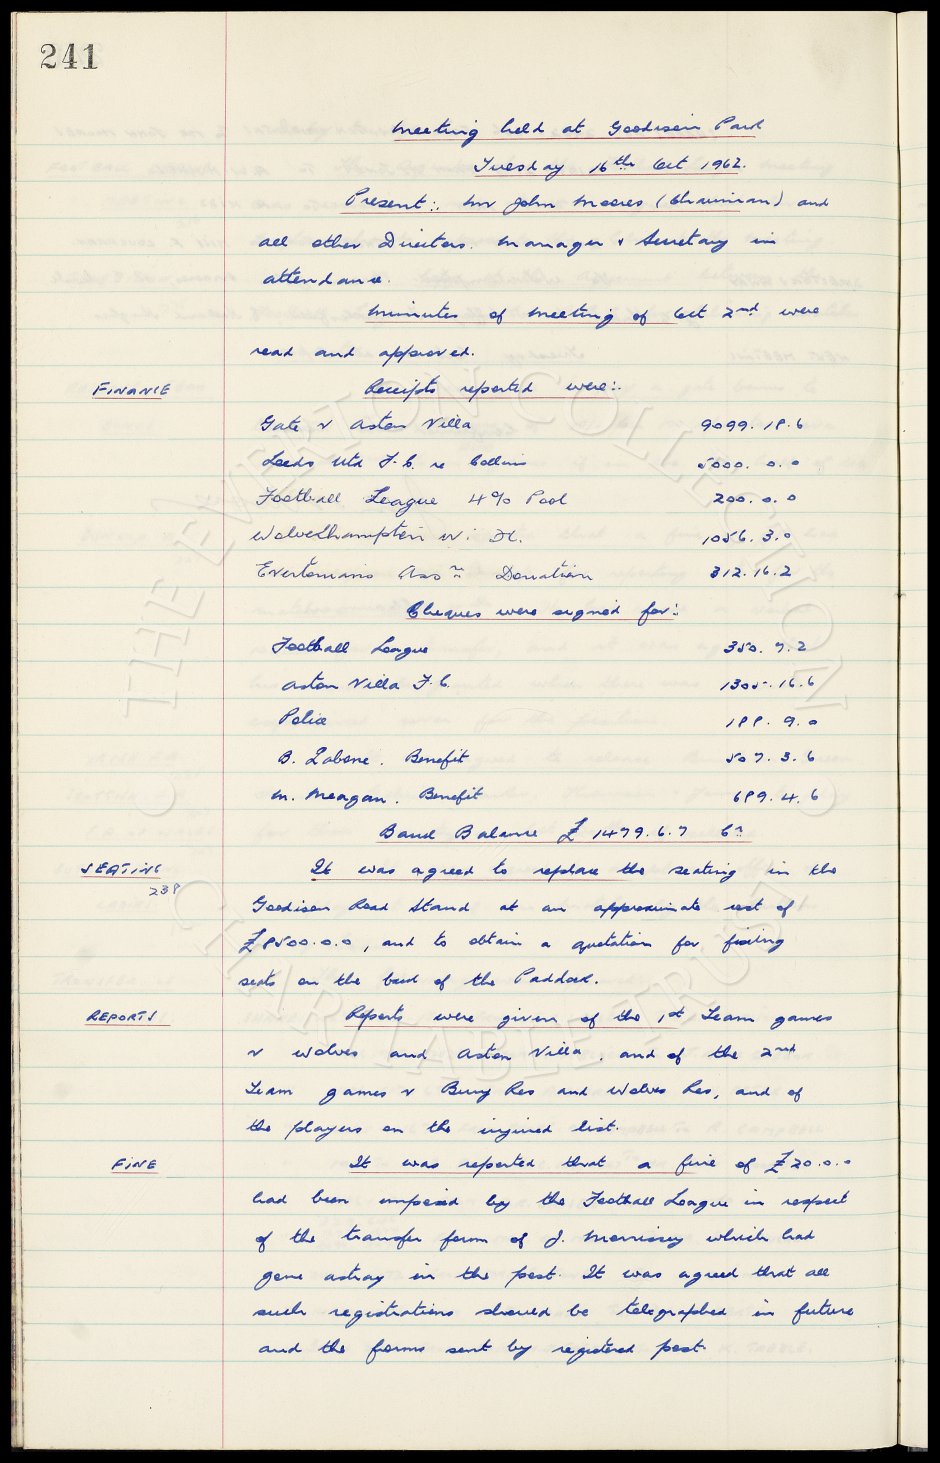 241
Meeting held at Goodison Park
Tuesday 16th Oct 1962.
Present:. Mr John Moores (Chairman) and
all other Directors. Manager & Secretary in
attendance.
Minutes of Meeting of Oct 2nd were
read and approved.
FINANCE Receipts reported were:.
Gate v Aston Villa 9099. 18. 6
Leeds Utd F.C. re Collins 5000. 0. 0
Football League 4% Pool 200. 0. 0
Wolverhampton W. 1056. 3. 0
Evertonians Assn Donation 312. 16. 2
Cheques were signed for:
Football League 350. 7. 2
Aston Villa F.C. 1305. 16. 6
Police 188. 9. 0
B. Labone. Benefit 507. 3. 6
M. Meagan. Benefit 689. 4. 6
Bank Balance £1479. 6. 7 Cr
SEATING It was agreed to replace the seating in the
238
Goodison Road Stand at an approximate cost of
£8500. 0. 0, and to obtain a quotation for fixing
seats on the back of the Paddock.
REPORTS Reports were given of the 1st Team games
v Wolves and Aston Villa, and of the 2nd
Team games v Bury Res and Wolves Res, and of
the players on the injured list.
FINE It was reported that a fine of £20. 0. 0
had been imposed by the Football League in respect
of the transfer form of J. Morrissey which had
gone astray in the post. It was agreed that all
such registrations should be telegraphed in future
and the forms sent by registered post.
THE EVERTON COLLECTION
CHARITABLE TRUST